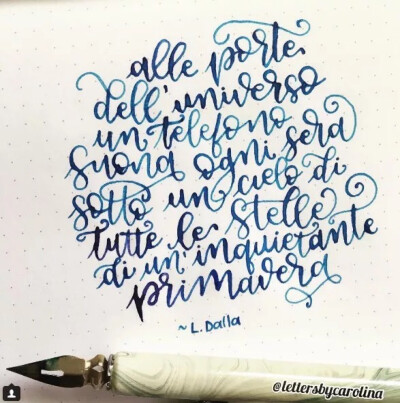 alle porte
dell'universo
un telefono
suona ogni sera
sotto un cielo di
tutte le stelle
di un'inquietante
primavera
~ L. Dalla
@lettersbycarolina